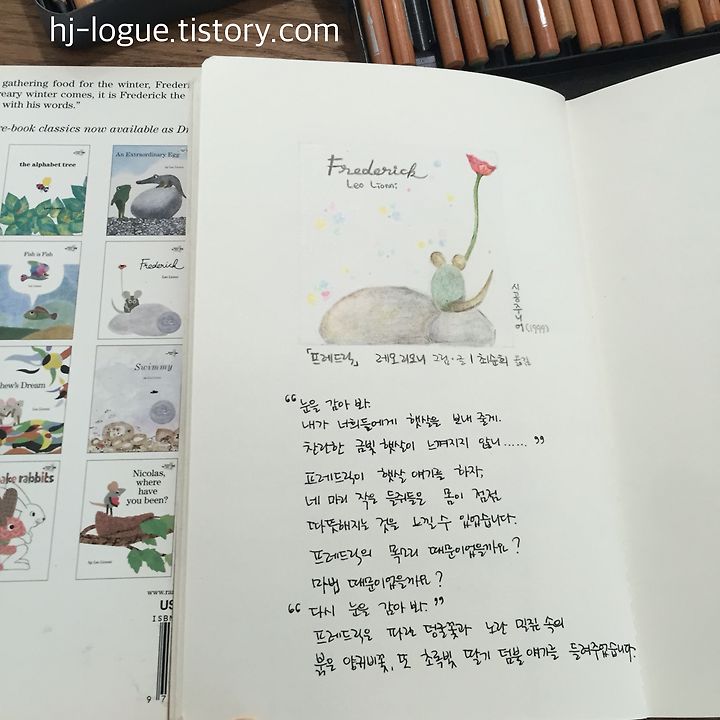 hj-logue.tistory.com
gathering food for the winter, Frederi
reary winter comes, it is Frederick the
with his words."
re-book classics now available as Dr
the alphabet tree
An Extraordinary Egg
Fish is Fish
Frederick
Leo Lionni
Swimmy
hew's Dream
ake rabbits
Nicolas,
where
have
you been?
by Leo Lionni
www.ra
US
ISBN
9 7
Frederick
Leo Lionni
시공주니어 (1999)
「프레드릭」 레오리오니 그림·글 | 최순희 옮김
“눈을 감아 봐.
내가 너희들에게 햇살을 보내 줄게.
찬란한 금빛 햇살이 느껴지지 않니...... ”
프레드릭이 햇살 얘기를 하자,
네 마리 작은 들쥐들은 몸이 점점
따뜻해지는 것을 느낄 수 있었습니다.
프레드릭의 목소리 때문이었을까요?
마법 때문이었을까요?
“다시 눈을 감아 봐.”
프레드릭은 파란 덩굴꽃과 노란 밀짚 속의
붉은 양귀비꽃, 또 초록빛 딸기 덤불 얘기를 들려주었습니다.